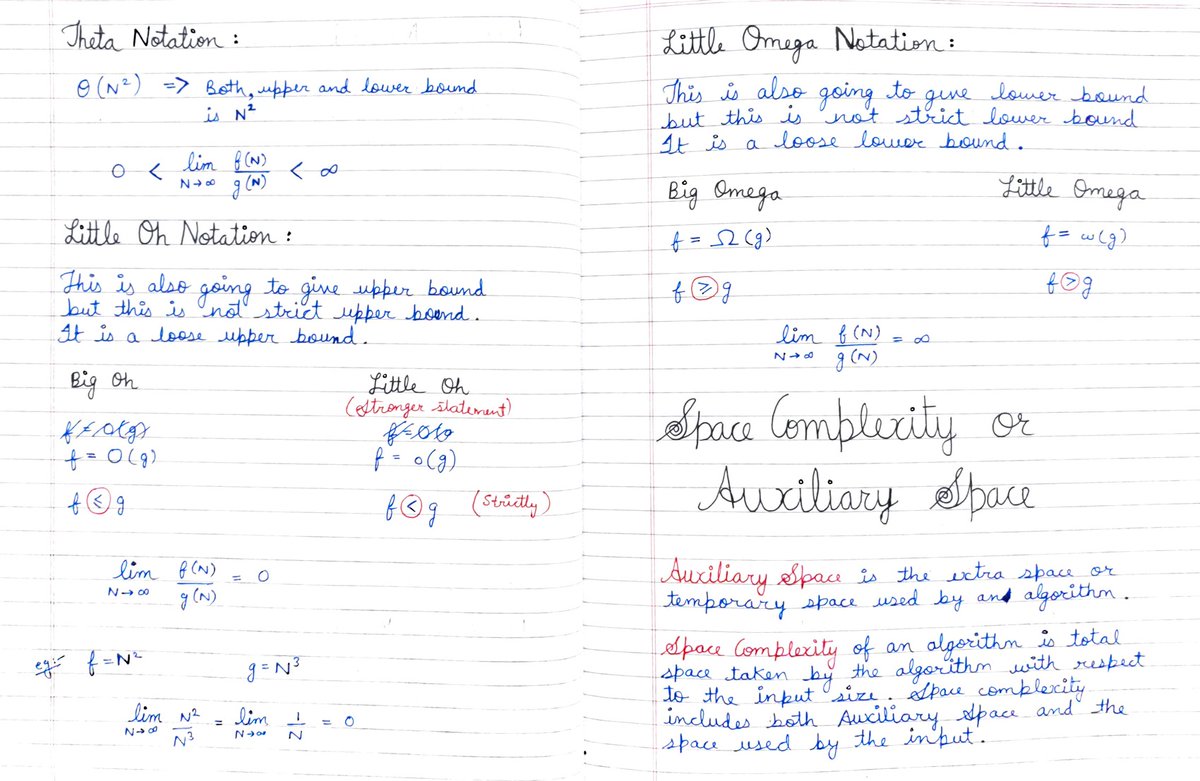 Theta Notation :
θ(N²) => Both, upper and lower bound
is N²
0 < lim N→∞ f(N)/g(N) < ∞
Little Oh Notation :
This is also going to give upper bound
but this is not strict upper bound.
It is a loose upper bound.
Big Oh
Little Oh
(Stronger statement)
f = O(g)
f = o(g)
f ≤ g
f < g (Strictly)
lim N→∞ f(N)/g(N) = 0
eg:- f = N² g = N³
lim N→∞ N²/N³ = lim N→∞ 1/N = 0
Little Omega Notation :
This is also going to give lower bound
but this is not strict lower bound
It is a loose lower bound.
Big Omega Little Omega
f = Ω(g) f = ω(g)
f ≥ g f > g
lim N→∞ f(N)/g(N) = ∞
Space Complexity or
Auxiliary Space
Auxiliary Space is the extra space or
temporary space used by an algorithm.
Space Complexity of an algorithm is total
space taken by the algorithm with respect
to the input size. Space complexity
include both Auxiliary Space and the
space used by the input.